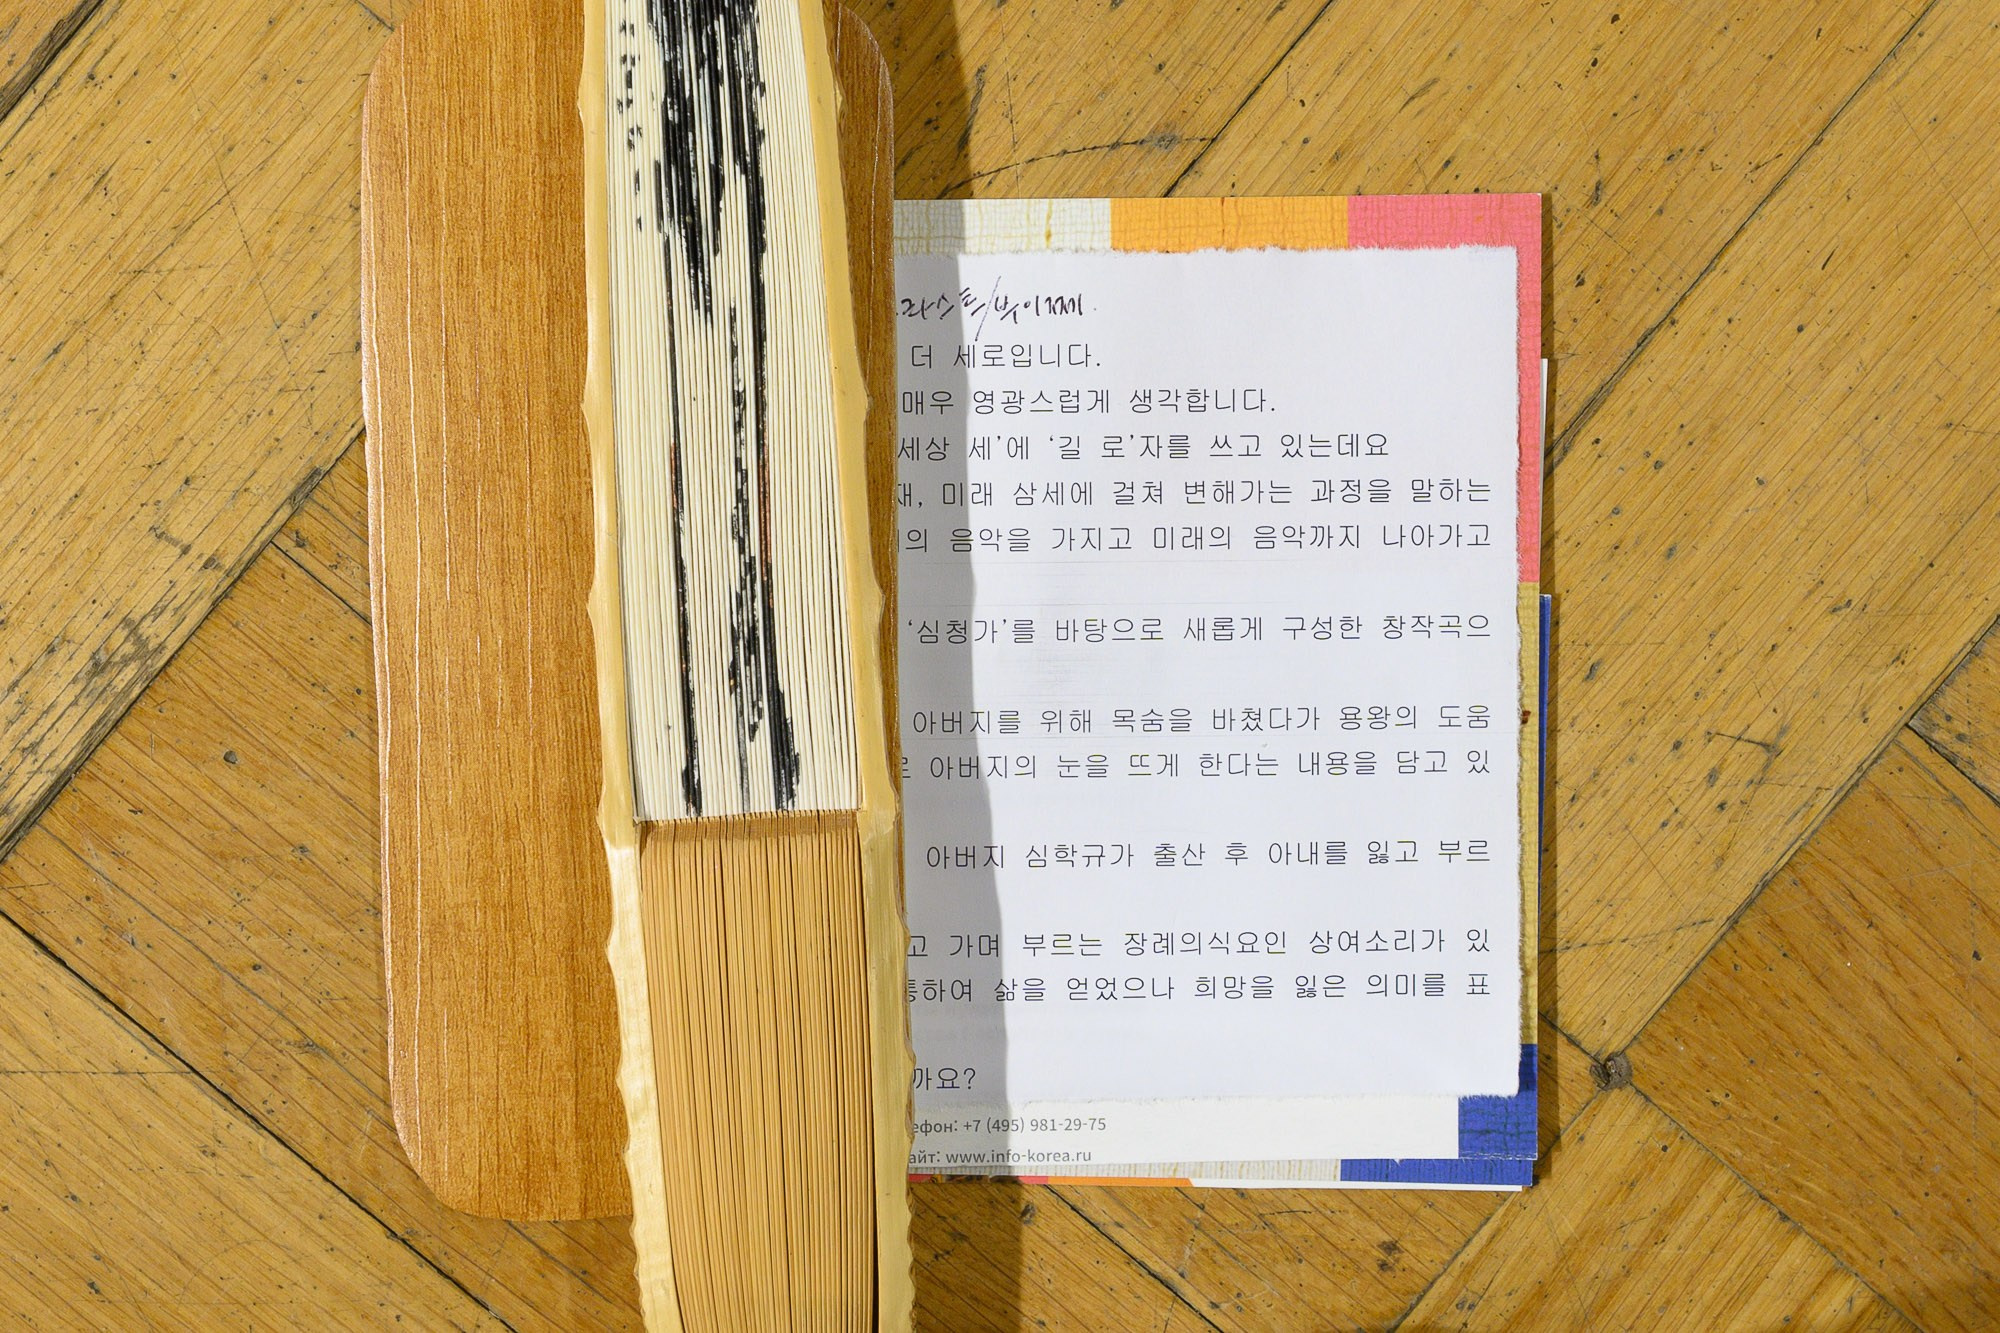 더 세로입니다.
매우 영광스럽게 생각합니다.
세상 세’에 ‘길 로’자를 쓰고 있는데요
재, 미래 삼세에 걸쳐 변해가는 과정을 말하는
의 음악을 가지고 미래의 음악까지 나아가고
‘심청가’를 바탕으로 새롭게 구성한 창작곡으
아버지를 위해 목숨을 바쳤다가 용왕의 도움
로 아버지의 눈을 뜨게 한다는 내용을 담고 있
아버지 심학규가 출산 후 아내를 잃고 부르
고 가며 부르는 장례의식요인 상여소리가 있
통하여 삶을 얻었으나 희망을 잃은 의미를 표
까요?
ефон: +7 (495) 981-29-75
айт: www.info-korea.ru